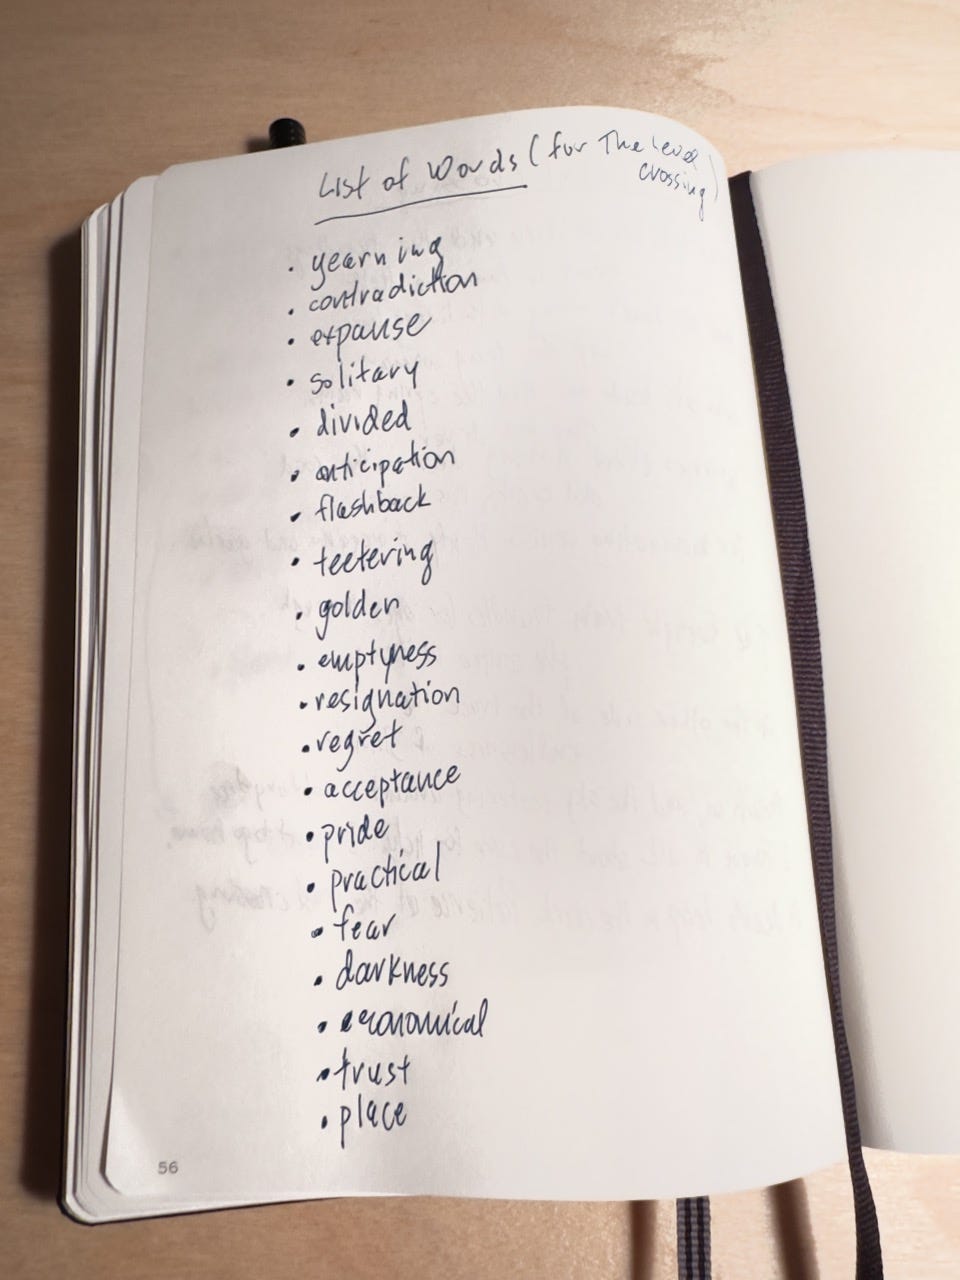 List of Words (for The Level
crossing)
• yearning
• contradiction
• expanse
• solitary
• divided
• anticipation
• flashback
• teetering
• golden
• emptyness
• resignation
• regret
• acceptance
• pride
• practical
• fear
• darkness
• economical
• trust
• place
56